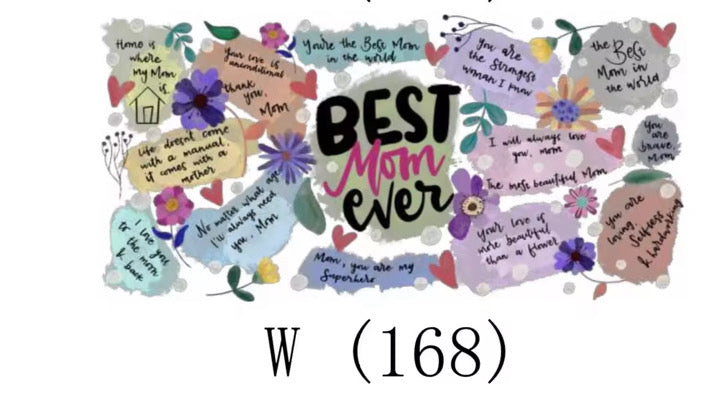 Home is
where
my Mom
is
Your love is
unconditional
thank
you,
Mom
You're the Best Mom
in the world
You are
the Strongest
woman I know
the Best
Mom in
the world
BEST
Mom
ever
Life doesn't come
with a manual,
it comes with a
mother
I will always love
you, mom
The most beautiful Mom
You
are
brave,
Mom
No matter what age
I'll always need
you, Mom
I love you
to the moon
& back
Mom, you are my
Superhero
Your love is
more beautiful
than a flower
You are
loving
Selfless
& hardworking
W (168)